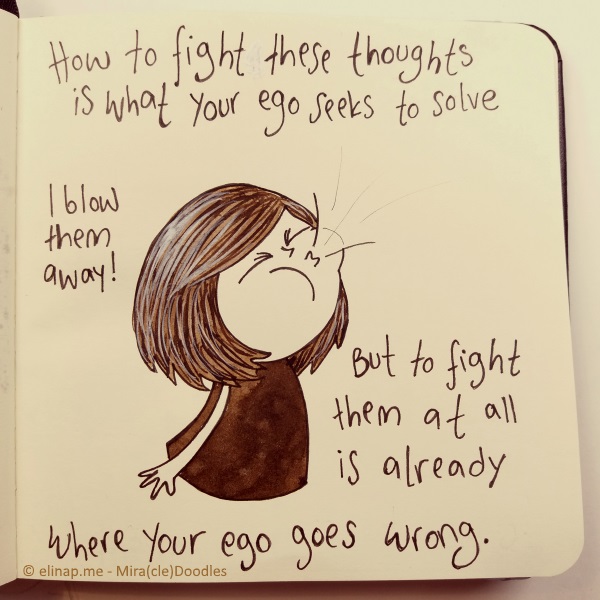 How to fight these thoughts
is what your ego seeks to solve
I blow
them
away!
But to fight
them at all
is already
where your ego goes wrong.
© elinap.me - Mira(cle)Doodles